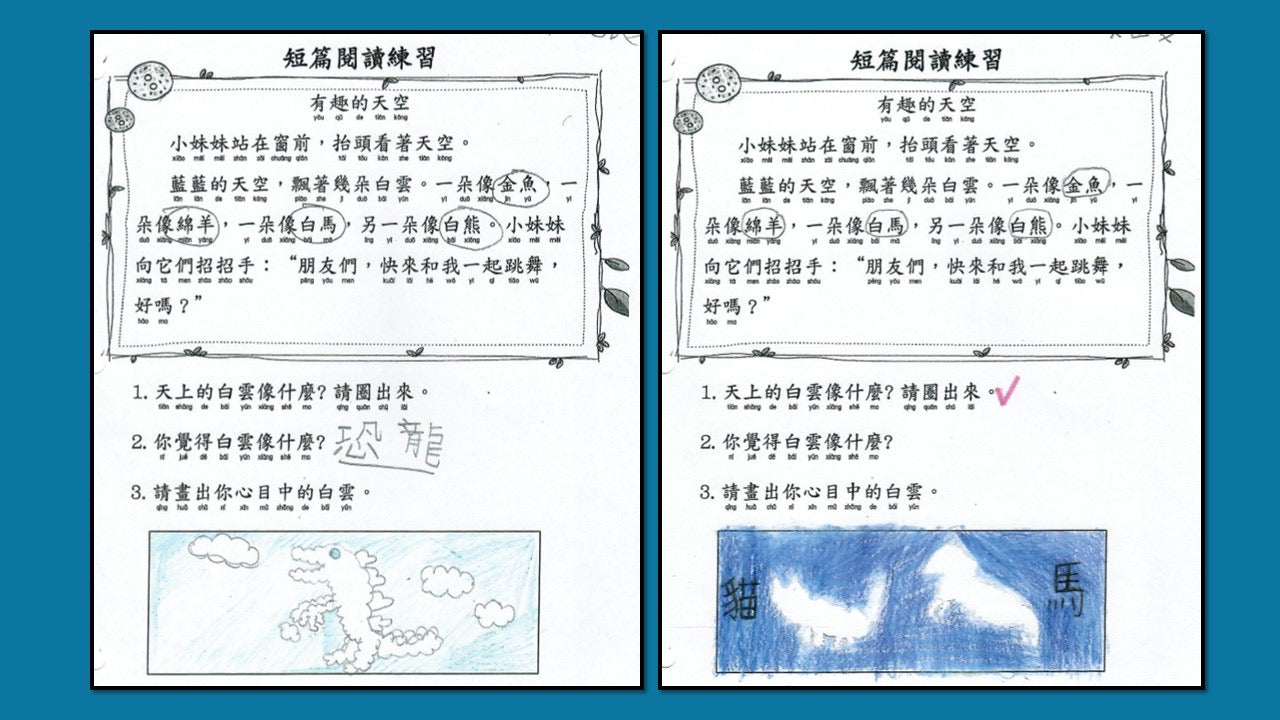 短篇閱讀練習
有趣的天空
yǒu qù de tiān kōng
小妹妹站在窗前，抬頭看著天空。
xiǎo mèi mèi zhàn zài chuāng qián tái tóu kàn zhe tiān kōng
藍藍的天空，飄著幾朵白雲。一朵像金魚，一
lán lán de tiān kōng piāo zhe jǐ duǒ bái yún yì duǒ xiàng jīn yú yì
朵像綿羊，一朵像白馬，另一朵像白熊。小妹妹
duǒ xiàng mián yáng yì duǒ xiàng bái mǎ lìng yì duǒ xiàng bái xióng xiǎo mèi mèi
向它們招招手：“朋友們，快來和我一起跳舞，
xiàng tā men zhāo zhāo shǒu péng yǒu men kuài lái hé wǒ yì qǐ tiào wǔ
好嗎？”
hǎo ma
1. 天上的白雲像什麼？請圈出來。
tiān shàng de bái yún xiàng shé mo qǐng quān chū lái
2. 你覺得白雲像什麼？恐龍
nǐ jué dé bái yún xiàng shé mo
3. 請畫出你心目中的白雲。
qǐng huà chū nǐ xīn mù zhōng de bái yún
短篇閱讀練習
有趣的天空
yǒu qù de tiān kōng
小妹妹站在窗前，抬頭看著天空。
xiǎo mèi mèi zhàn zài chuāng qián tái tóu kàn zhe tiān kōng
藍藍的天空，飄著幾朵白雲。一朵像金魚，一
lán lán de tiān kōng piāo zhe jǐ duǒ bái yún yì duǒ xiàng jīn yú yì
朵像綿羊，一朵像白馬，另一朵像白熊。小妹妹
duǒ xiàng mián yáng yì duǒ xiàng bái mǎ lìng yì duǒ xiàng bái xióng xiǎo mèi mèi
向它們招招手：“朋友們，快來和我一起跳舞，
xiàng tā men zhāo zhāo shǒu péng yǒu men kuài lái hé wǒ yì qǐ tiào wǔ
好嗎？”
hǎo ma
1. 天上的白雲像什麼？請圈出來。
tiān shàng de bái yún xiàng shé mo qǐng quān chū lái
2. 你覺得白雲像什麼？
nǐ jué dé bái yún xiàng shé mo
3. 請畫出你心目中的白雲。
qǐng huà chū nǐ xīn mù zhōng de bái yún
貓 馬